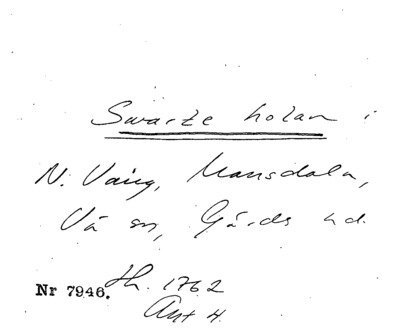 Swarte holan i
N. Vång, Mansdala,
Vä sn, Gärds hd.
Nr 7946. th. 1762
Ant 4.